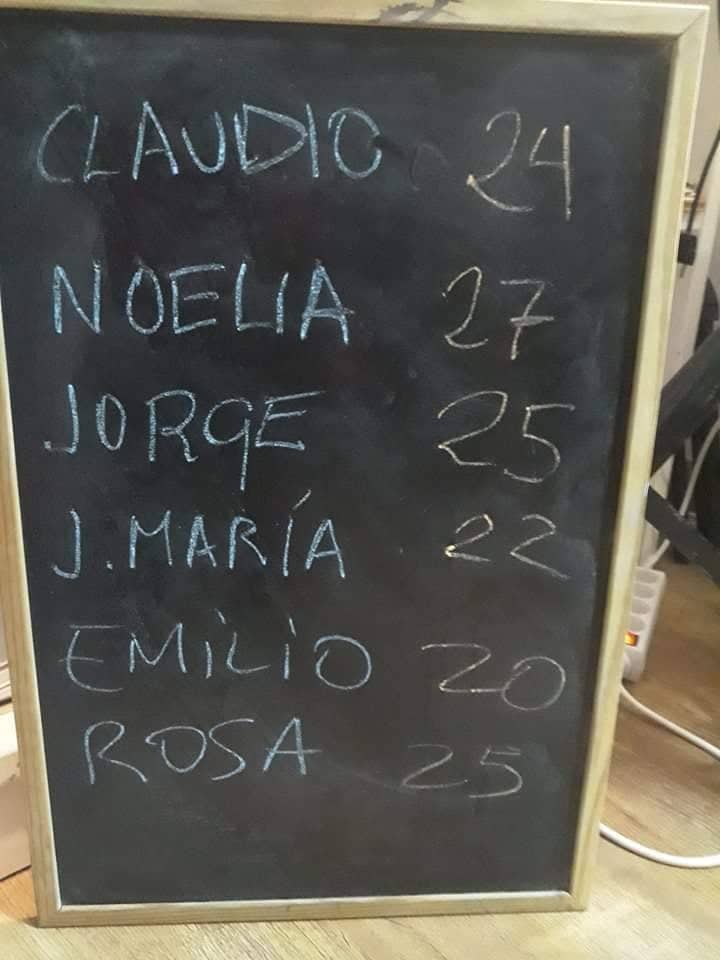 CLAUDIO 24
NOELIA 27
JORGE 25
J. MARÍA 22
EMILIO 20
ROSA 25